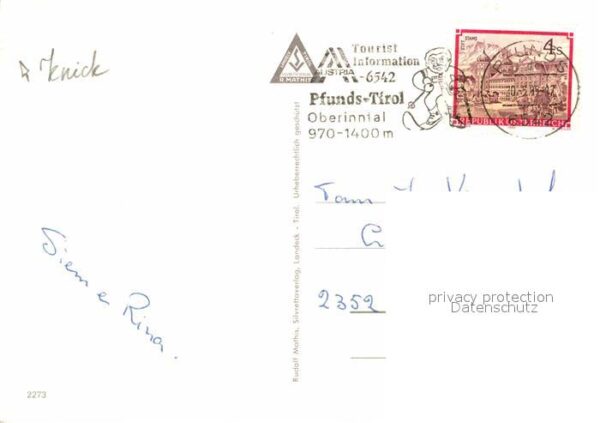 Knick
R. MATHIS
AUSTRIA
Tourist
Information
A-6542
Pfunds-Tirol
Oberinntal
970-1400m
STIFT STAMS
4 S
REPUBLIK ÖSTERREICH
Rudolf Mathis, Silvrettaverlag, Landeck - Tirol. Urheberrechtlich geschützt
2352
privacy protection
Datenschutz
Siem en
Rina.
2273